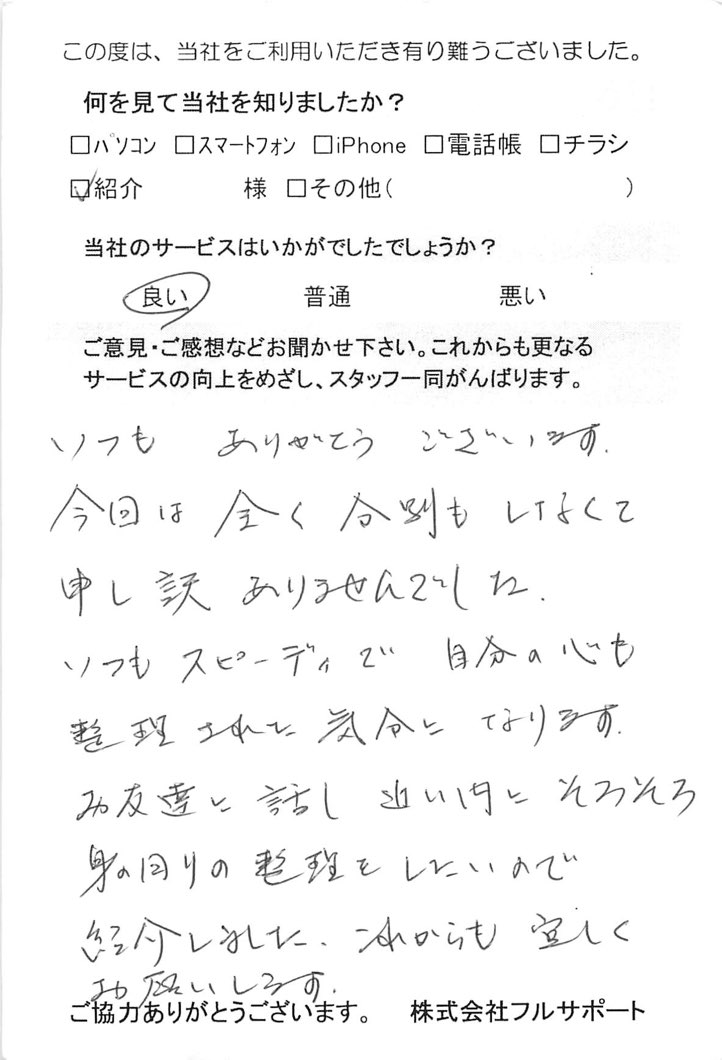 この度は、当社をご利用いただき有り難うございました。
何を見て当社を知りましたか？
□パソコン □スマートフォン □iPhone □電話帳 □チラシ
☑紹介　　　　様 □その他(　　　　　　　　　　)
当社のサービスはいかがでしたでしょうか？
良い　　　　普通　　　　悪い
ご意見・ご感想などお聞かせ下さい。これからも更なる
サービスの向上をめざし、スタッフ一同がんばります。
いつも ありがとう ございます.
今回は 全く 分別も しなくて
申し訳 ありませんでした.
いつも スピーディで 自分の心も
整理された 気分に なります.
お友達に 話し 近い内に そろそろ
身の回りの 整理を したいので
紹介しました. これからも 宜しく
お願いします.
ご協力ありがとうございます。　株式会社フルサポート